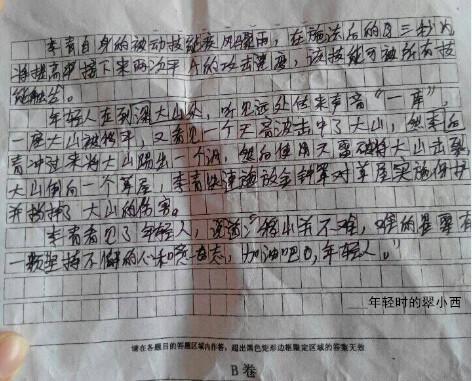 李青自身的被动技能疾风骤雨,在施法后的3秒内
将提高接下来两次平A的攻击速度,该技能可被所有技
能触发。
年轻人在到深大山处,听见远处传来声音“一库”,
一座大山被传开,又看见一个天雷波击中了大山,然后李
青冲过来将大山踢出一个洞,然后使用天雷破将大山击
大山倒向一个草屋,李青快速施放金钟罩对草屋实施保护
并抵挡了大山的伤害。
李青看见了年轻人,说道:“移山并不难,难的是要有
一颗坚持不懈的心和态,加油吧,年轻人。”
年轻时的翠小西
请在各题目的答题区域内作答,超出黑色矩形边框限定区域的答案无效
B卷